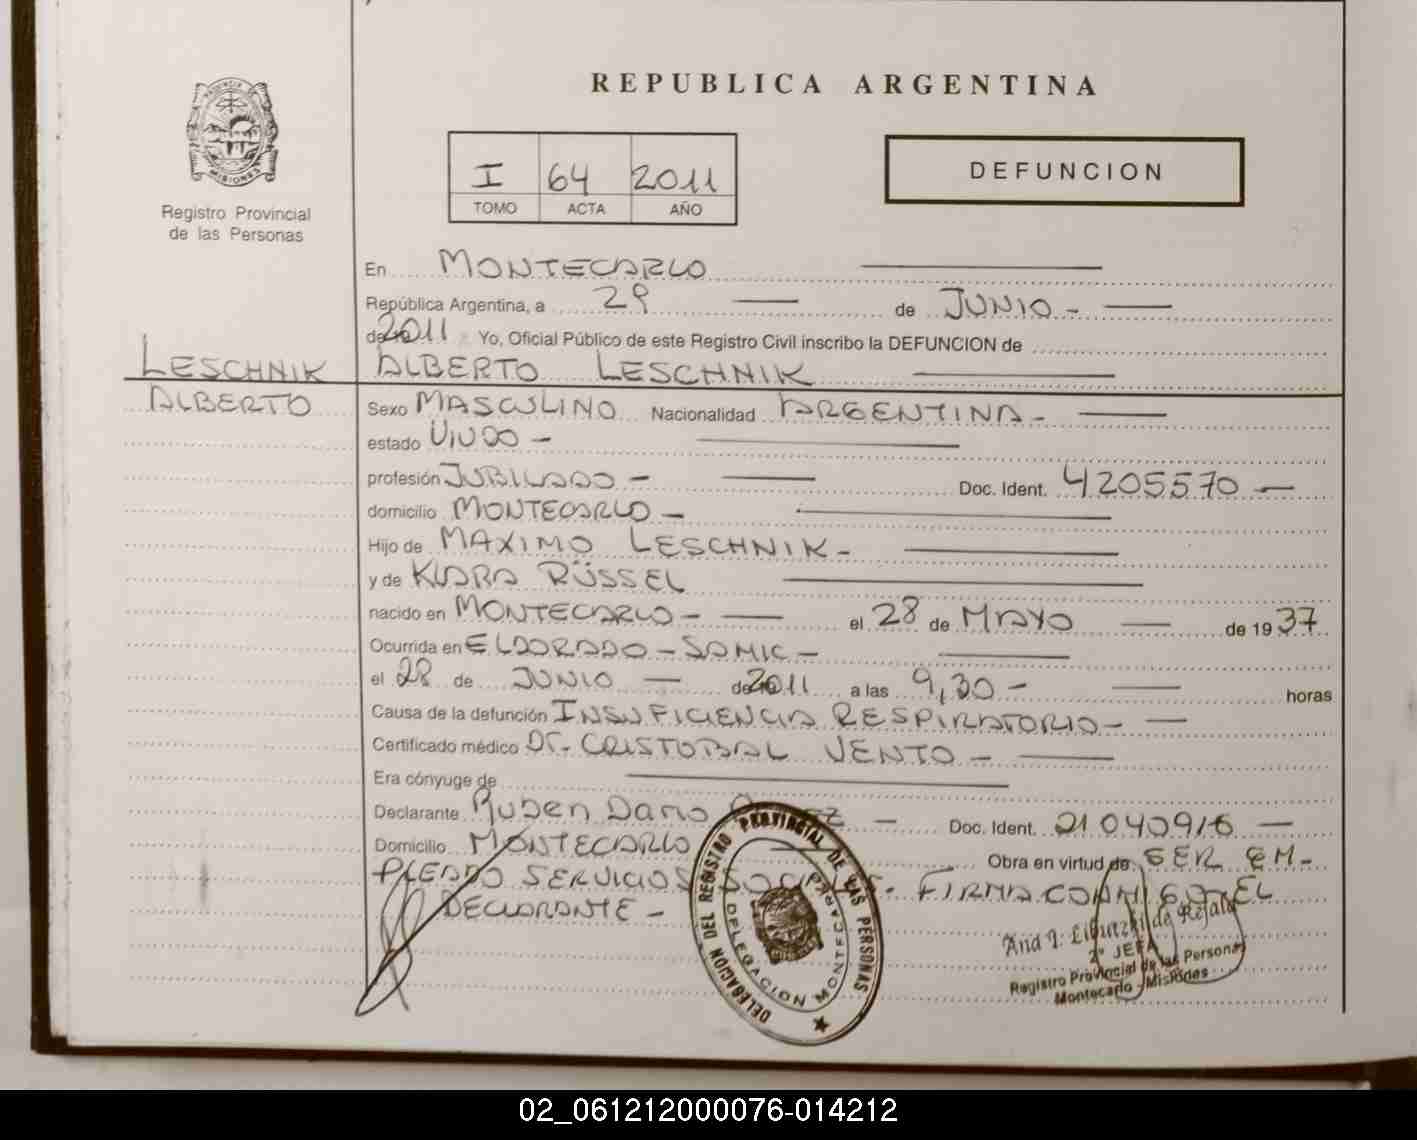 REPUBLICA ARGENTINA
PROVINCIA DE
MISIONES
Registro Provincial
de las Personas
I 64 2011
TOMO ACTA AÑO
DEFUNCION
En MONTECARLO
República Argentina, a 29 de JUNIO -
de 2011 Yo, Oficial Público de este Registro Civil inscribo la DEFUNCION de
LESCHNIK
ALBERTO
ALBERTO LESCHNIK
Sexo MASCULINO Nacionalidad ARGENTINA -
estado VIUDO -
profesión JUBILADO - Doc. Ident. 4205570 -
domicilio MONTECARLO -
Hijo de MAXIMO LESCHNIK -
y de KLARA RÜSSEL
nacido en MONTECARLO - el 28 de MAYO de 1937
Ocurrida en ELDORADO - SAMIC -
el 28 de JUNIO de 2011 a las 9,30 - horas
Causa de la defunción INSUFICIENCIA RESPIRATORIO -
Certificado médico Dr. CRISTOBAL VENTO -
Era cónyuge de
Declarante Ruben Dario - Doc. Ident. 21040916 -
Domicilio MONTECARLO Obra en virtud de SER EM-
PLEADO SERVICIOS SOCIALES - FIRMA CONMIGO EL
DECLARANTE -
DELEGACIÓN DEL REGISTRO PROVINCIAL DE LAS PERSONAS
DELEGACION MONTECARLO
2° JEFA
Registro Provincial de las Personas
Montecarlo - Misiones
02_061212000076-014212